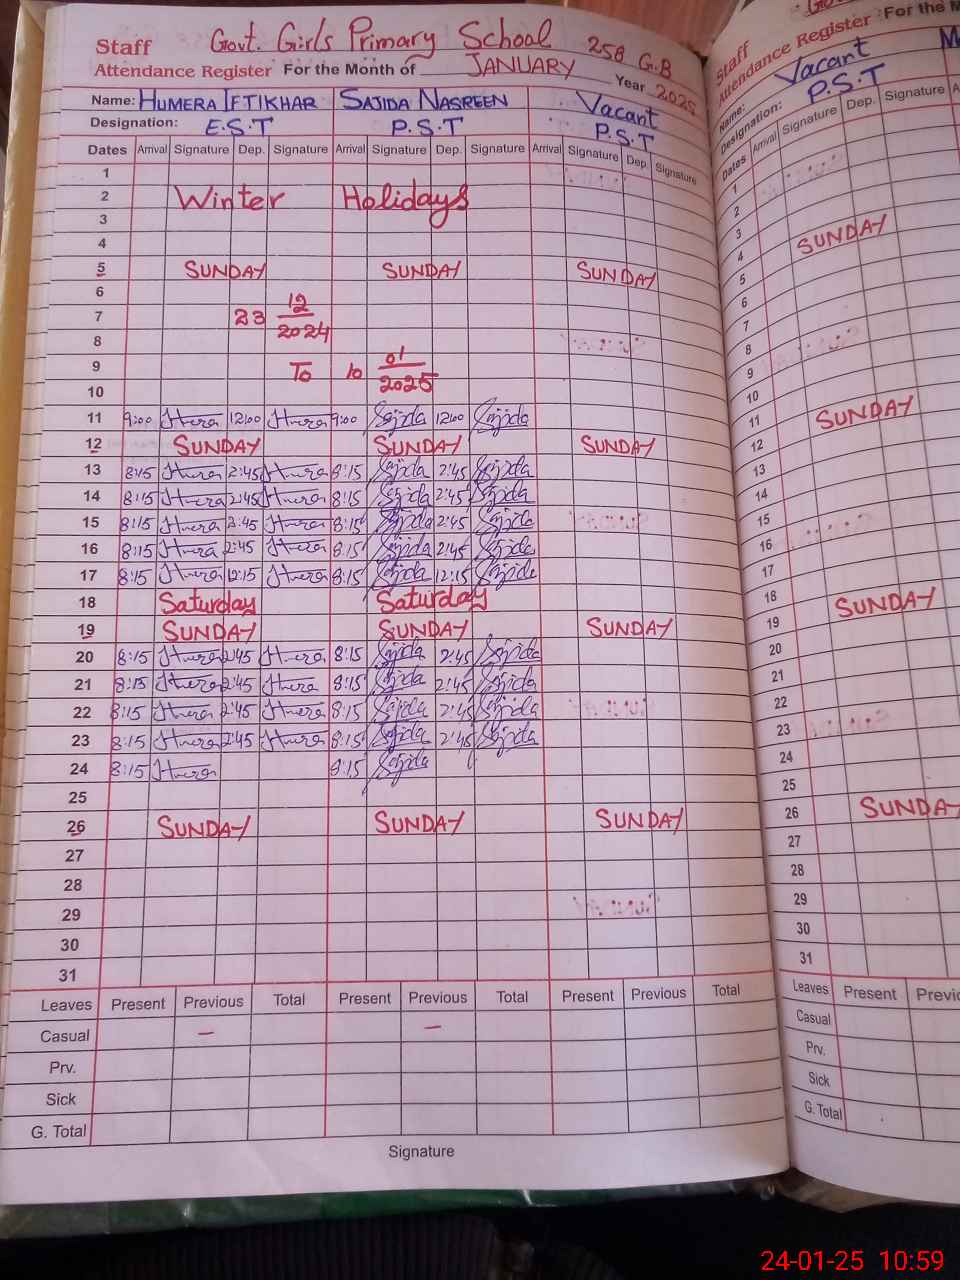 Staff Govt. Girls Primary School 258 G.B
Attendance Register For the Month of JANUARY Year 2025
Name: HUMERA IFTIKHAR SAJIDA NASREEN Vacant
Designation: E.S.T P.S.T P.S.T
Dates Arrival Signature Dep. Signature Arrival Signature Dep. Signature Arrival Signature Dep. Signature
1
2 Winter Holidays
3
4
5 SUNDAY SUNDAY SUNDAY
6
7 23 12/2024
8
9 To 10 01/2025
10
11 9:00 Humera 12:00 Humera 9:00 Sajida 12:00 Sajida
12 SUNDAY SUNDAY SUNDAY
13 8:15 Humera 2:45 Humera 8:15 Sajida 2:45 Sajida
14 8:15 Humera 2:45 Humera 8:15 Sajida 2:45 Sajida
15 8:15 Humera 2:45 Humera 8:15 Sajida 2:45 Sajida
16 8:15 Humera 2:45 Humera 8:15 Sajida 2:45 Sajida
17 8:15 Humera 12:15 Humera 8:15 Sajida 12:15 Sajida
18 Saturday Saturday
19 SUNDAY SUNDAY SUNDAY
20 8:15 Humera 2:45 Humera 8:15 Sajida 2:45 Sajida
21 8:15 Humera 2:45 Humera 8:15 Sajida 2:45 Sajida
22 8:15 Humera 2:45 Humera 8:15 Sajida 2:45 Sajida
23 8:15 Humera 2:45 Humera 8:15 Sajida 2:45 Sajida
24 8:15 Humera 8:15 Sajida
25
26 SUNDAY SUNDAY SUNDAY
27
28
29
30
31
Leaves Present Previous Total Present Previous Total Present Previous Total
Casual – –
Prv.
Sick
G. Total
Signature
Staff
Attendance Register For the
Name: Vacant
Designation: P.S.T
Dates Arrival Signature Dep. Signature
1
2
3
4 SUNDAY
5
6
7
8
9
10
11 SUNDAY
12
13
14
15
16
17
18 SUNDAY
19
20
21
22
23
24
25
26 SUNDAY
27
28
29
30
31
Leaves Present
Casual
Prv.
Sick
G. Total
24-01-25 10:59